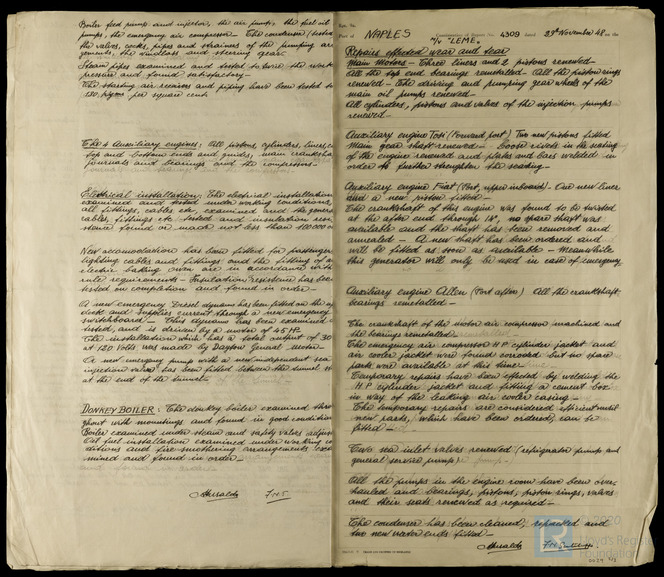 Boiler feed pumps and injector, the air pumps, the fuel oil
pumps, the emergency air compressor — The condenser (tested
the valves, cocks, pipes and strainers of the pumping ar-
gements, the windlass and steering gear —
Steam pipes examined and tested to twice the work
pressure and found satisfactory —
The starting air receivers and piping have been tested to
per square cent.
The 4 Auxiliary engines: All pistons, cylinders, liners, c
top and bottom ends and guides, main cranksha
journals and bearings and the compressors —
Electrical installation: The electrical installation
examined and tested under working conditions,
all fittings, cables etc, examined and the genera
cables, fittings etc. tested and insulation resi-
stance found or made not less than 100000 o
New accomodation has been fitted for passenger
lighting cables and fittings and the fitting of a
electric baking oven are in accordance with
rule requirements — Insulation resistance has been
tested on completion and found in order —
A new emergency Diesel dynamo has been fitted on the
deck and supplies current through a new emergency
switchboard — This dynamo has been examined
tested, and is driven by a motor of 45 HP.
The installation which has a total output of 30
at 120 Volts was made by Dayton General Motor
A new emergency pump with a new independent sea
injection valve has been fitted between the tunnel
at the end of the tunnel —
DONKEY BOILER: The donkey boiler examined thro
ghout with mountings and found in good condition
Boiler examined under steam and safety valves adjus
Oil fuel installation examined under working co
ditions and fire smothering arrangements exa
mined and found in order —
FNS
Port of NAPLES
4309 dated 29th November 48 on the
M/V "LEME"
Repairs effected wear and tear
Main Motors — Three liners and 2 pistons renewed —
All the top end bearings remetalled — All the piston rings
renewed — The driving and pumping gear wheels of the
main oil pumps renewed —
All cylinders, pistons and valves of the injection pumps
renewed —
Auxiliary engine Tosi (Forward port) Two new pistons fitted
Main gear shaft renewed — Loose rivets in the seating
of the engine renewed and plates and bars welded in
order to further strengthen the seating —
Auxiliary engine Fiat (Port, inboard) — One new liner
and a new piston fitted —
The crankshaft of this engine was found to be twisted
at the after end through 14°, no spare shaft was
available and the shaft has been removed and
annealed — A new shaft has been ordered and
will be fitted as soon as available — Meanwhile
this generator will only be used in case of emergency
Auxiliary engine Allen (Port after) All the crankshaft
bearings remetalled —
The crankshaft of the motor air compressor machined and
the bearings remetalled
The emergency air compressor HP cylinder jacket and
air cooler jacket were found corroded but no spare
parts were available at this time —
Temporary repairs have been effected by welding the
HP cylinder jacket and fitting a cement box
in way of the leaking air cooler casing —
The temporary repairs are considered efficient until
new parts, which have been ordered, can be
fitted —
Two sea inlet valves renewed (refrigerator pumps and
general service pump)
All the pumps in the engine room have been over-
hauled and bearings, pistons, piston rings, valves
and their seats renewed as required —
The condenser has been cleaned, repacked and
two new water ends fitted —
© 2020
Lloyd's Register
Foundation